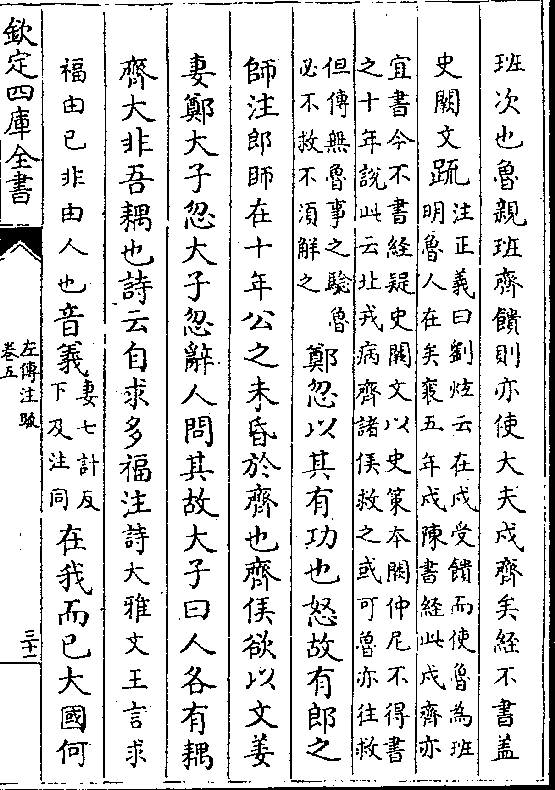 班次也魯親班齊饋則亦使大夫戍齊矣經不書蓋
史闕文疏注正義曰劉炫云在戍受饋而使魯為班
明魯人在矣襄五年戍陳書經此戍齊亦
宜書今不書經疑史闕文以史策本闕仲尼不得書
之十年說此云北戎病齊諸侯救之或可魯亦往救
但傳無魯事之驗魯
必不救不須解之
鄭忽以其有功也怒故有郎之
師注郎師在十年公之未昏於齊也齊侯欲以文姜
妻鄭大子忽大子忽辭人問其故大子曰人各有耦
齊大非吾耦也詩云自求多福注詩大雅文王言求
福由己非由人也音義妻七計反
下及注同
在我而已大國何
欽定四庫全書
左傳注疏
卷五
三十一